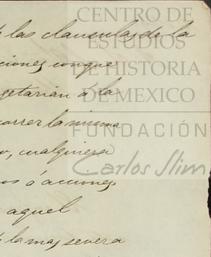 CENTRO DE
ESTUDIOS
DE HISTORIA
DE MEXICO
FUNDACIÓN
Carlos Slim
las clausulas de la
ciones conque
getarian a la
correr la misma
o, cualquiera
os ó acciones
aquel
la mas severa